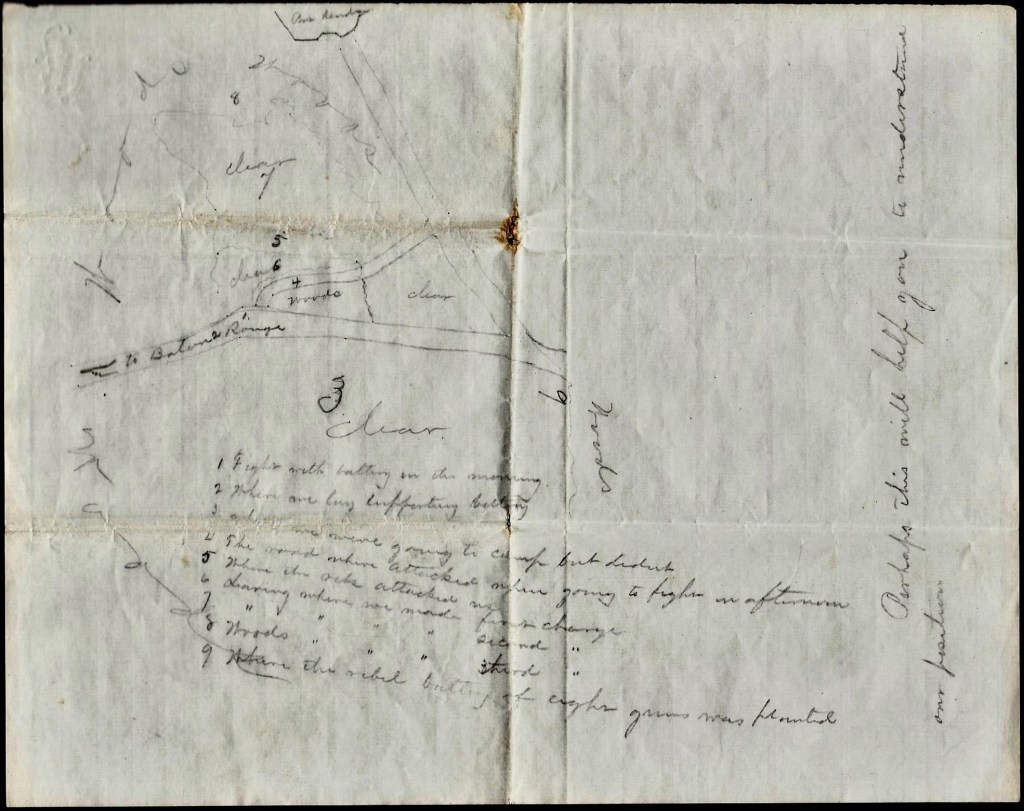 Port Hudson
8
clear
7
5
clear 6
4
woods
clear
to Baton Rouge
2
3
clear
9
Road
1 Fight with battery in the morning
2 Where we lay supporting battery
3 where we were going to camp but didnt
4 The road where attacked when going to fight in afternoon
5 Where the rebs attacked us
6 clearing where we made first charge
7 " " " " second "
8 Woods " " " third "
9 Where the rebel battery of eight guns was planted
Perhaps this will help you to understand
our position